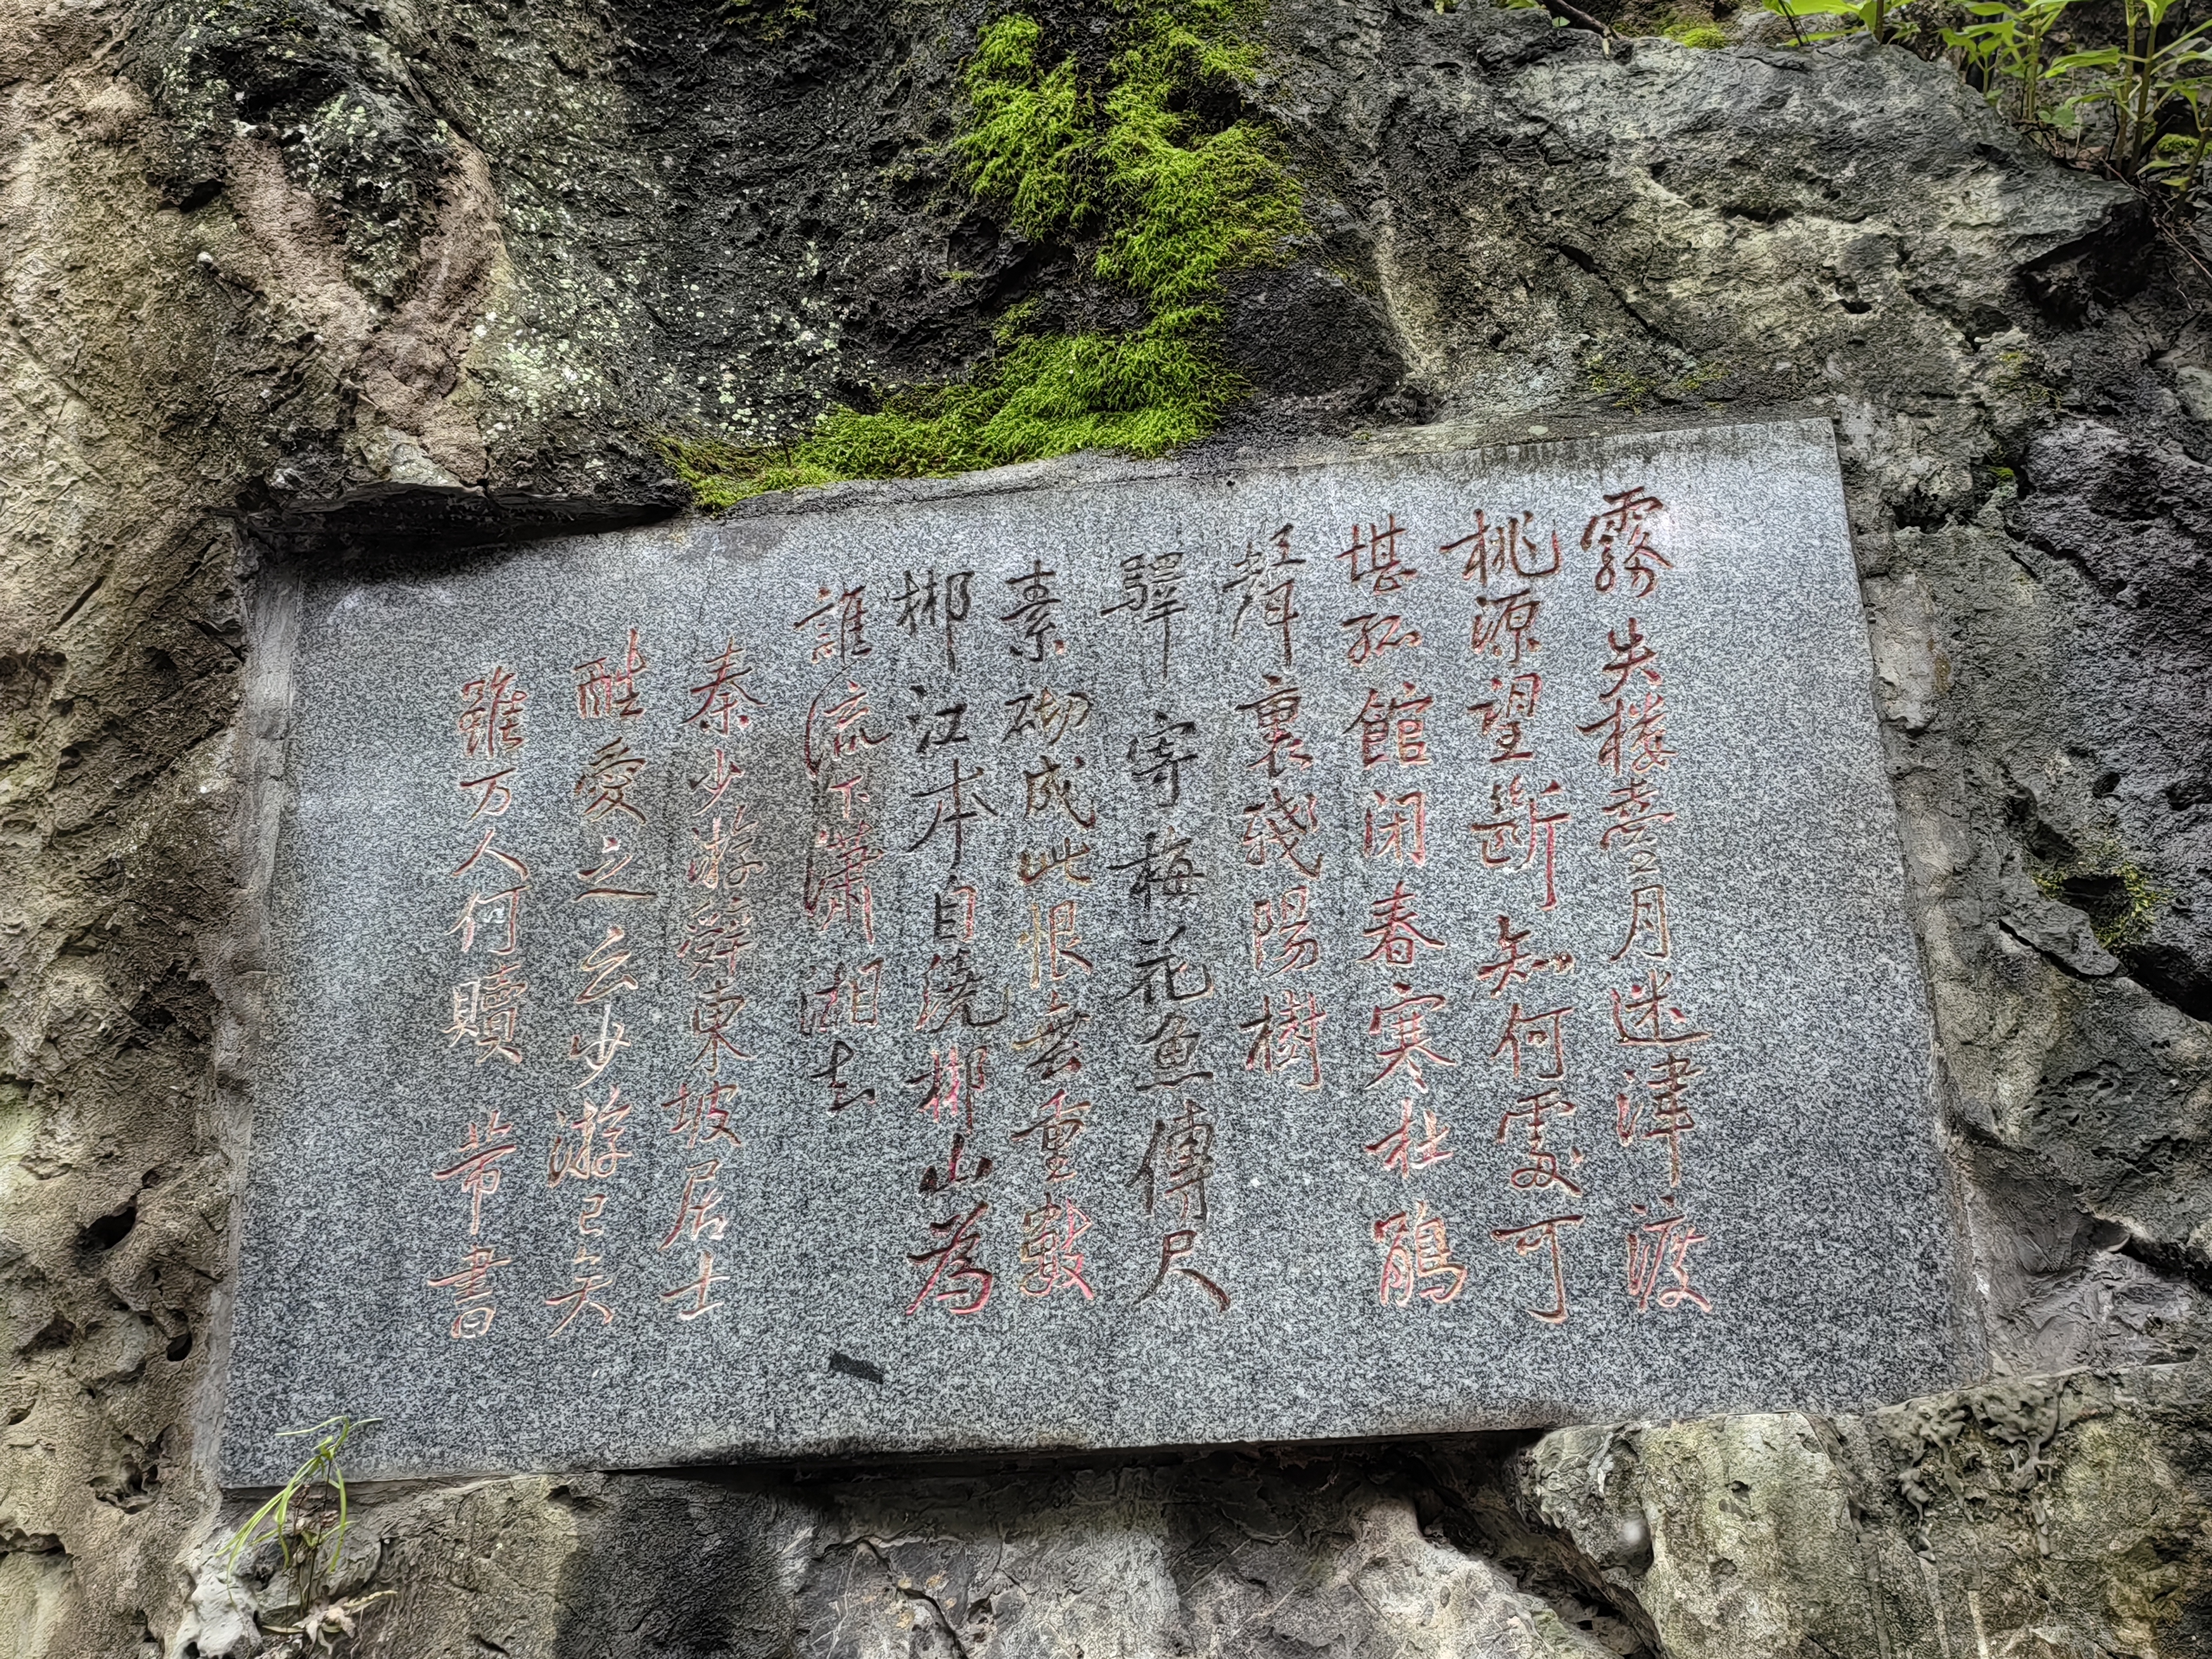 霧失楼臺月迷津渡
桃源望斷知何處可
堪孤館闭春寒杜鵑
聲裏殘陽樹
驛寄梅花魚傳尺
素砌成此恨無重數
郴江本自繞郴山為
誰流下瀟湘去
秦少游辭東坡居士
酷愛之云少游已矣
雖万人何贖 芾書